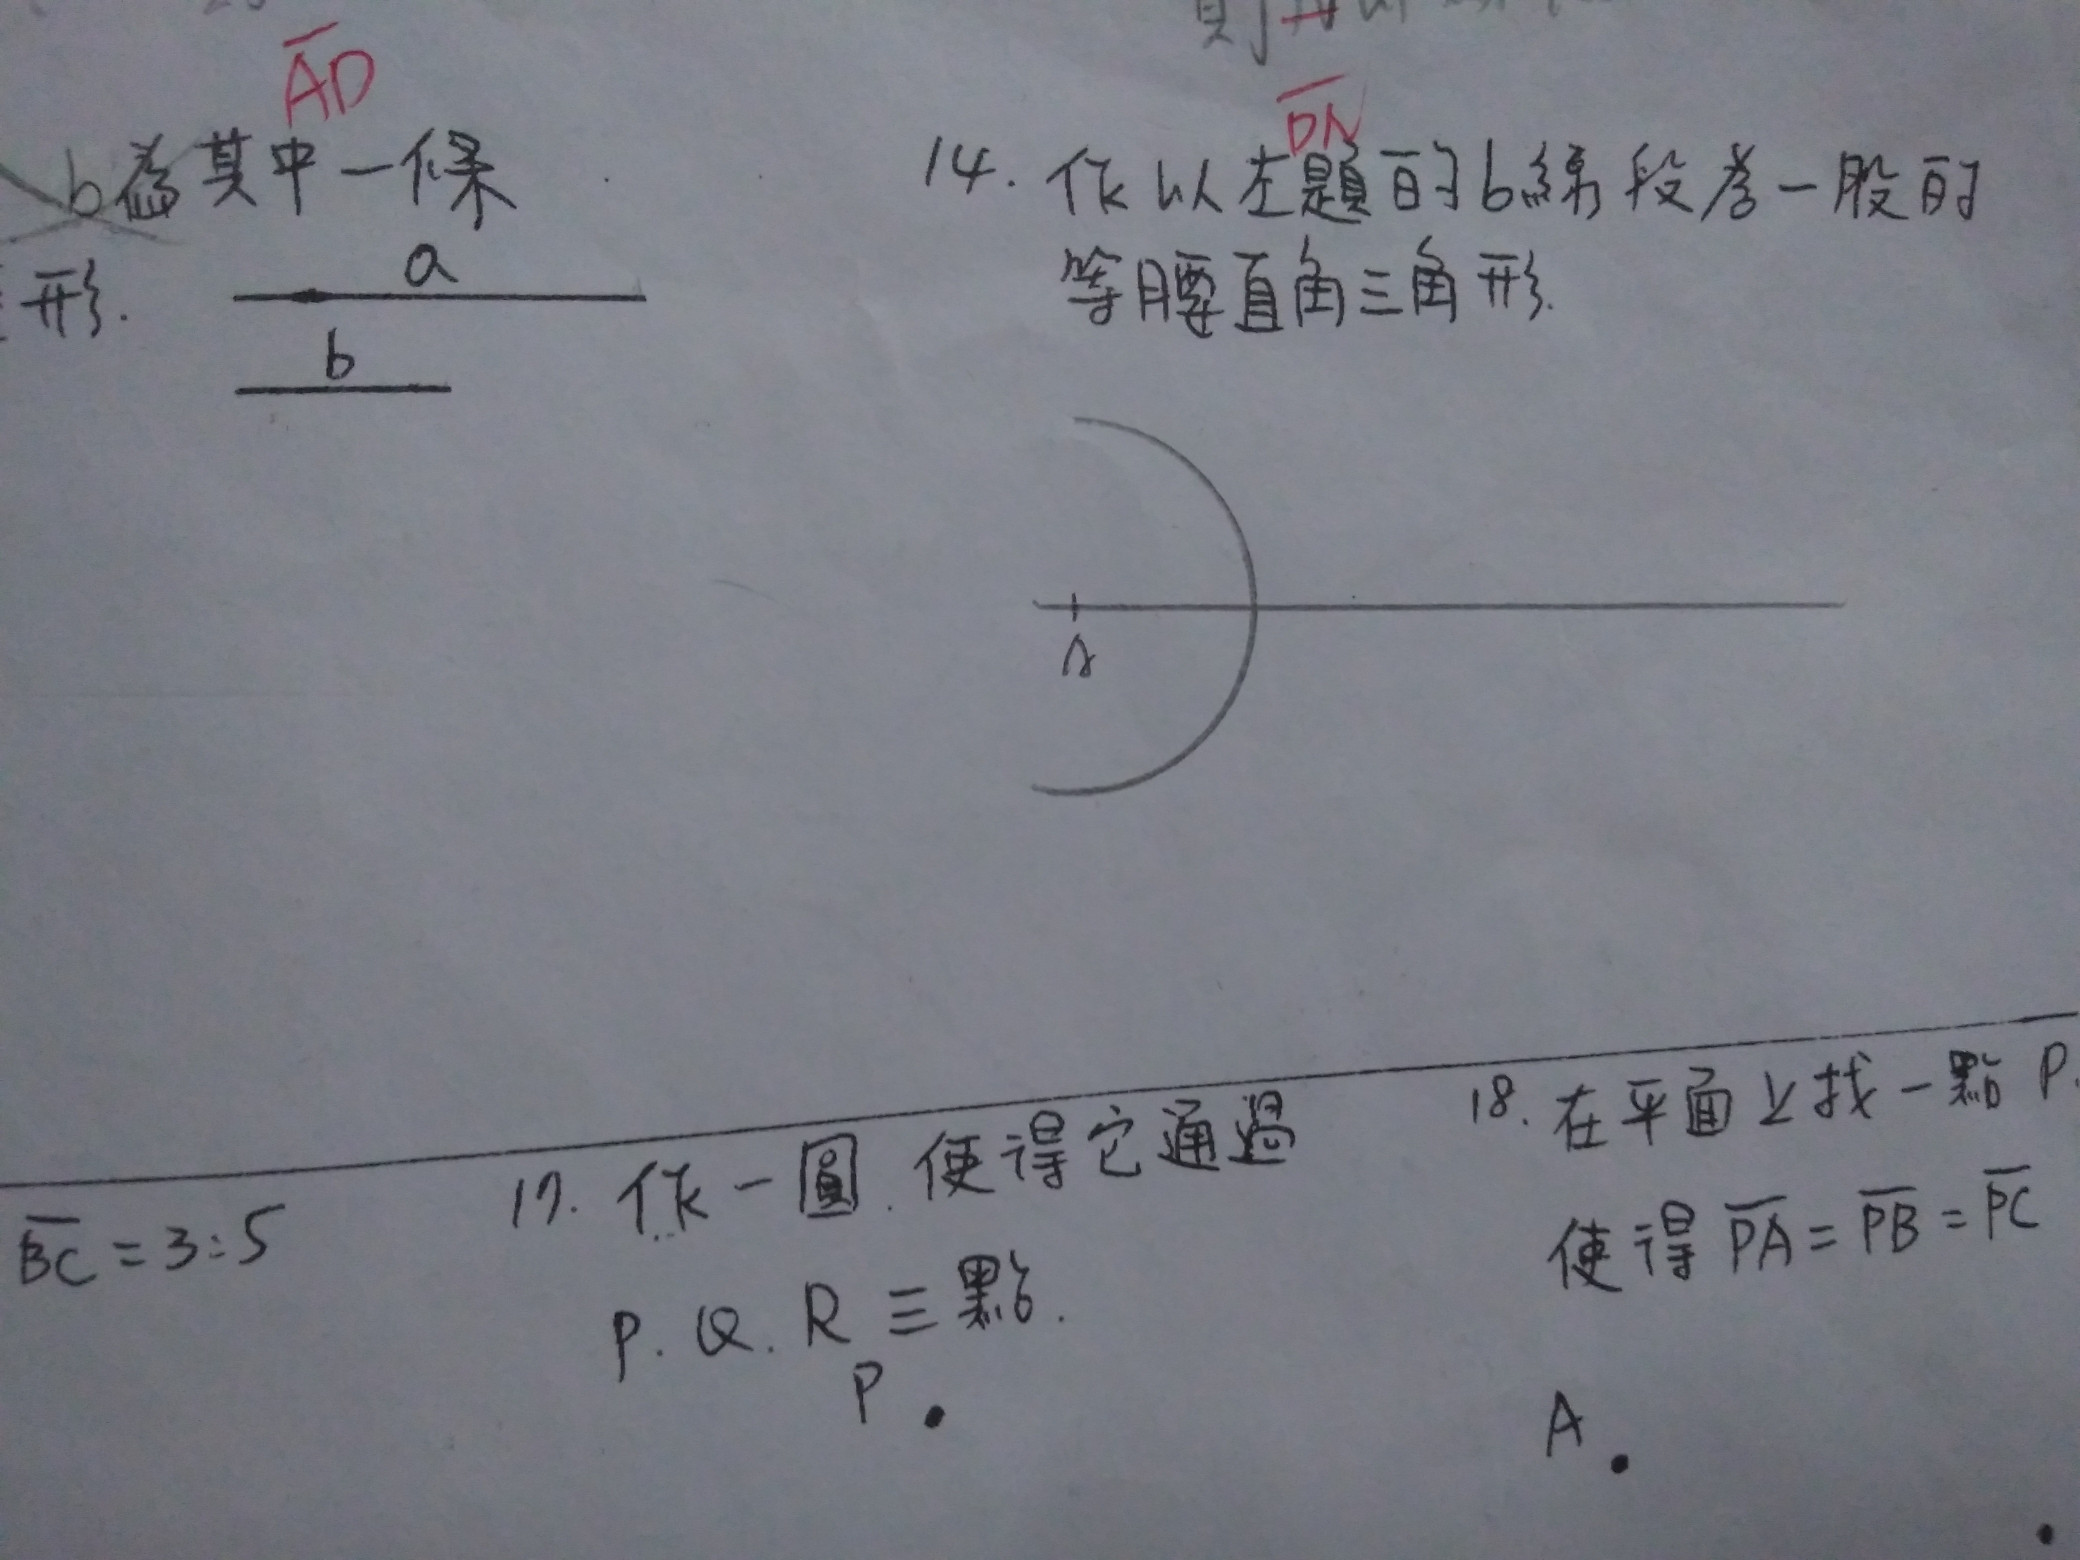 AD
DN
b為其中一條
形.
a
b
14. 作以左題的b線段為一股的
等腰直角三角形.
A
BC = 3:5
17. 作一圓.使得它通過
P. Q. R 三點.
P
18. 在平面上找一點 P.
使得 PA = PB = PC
A